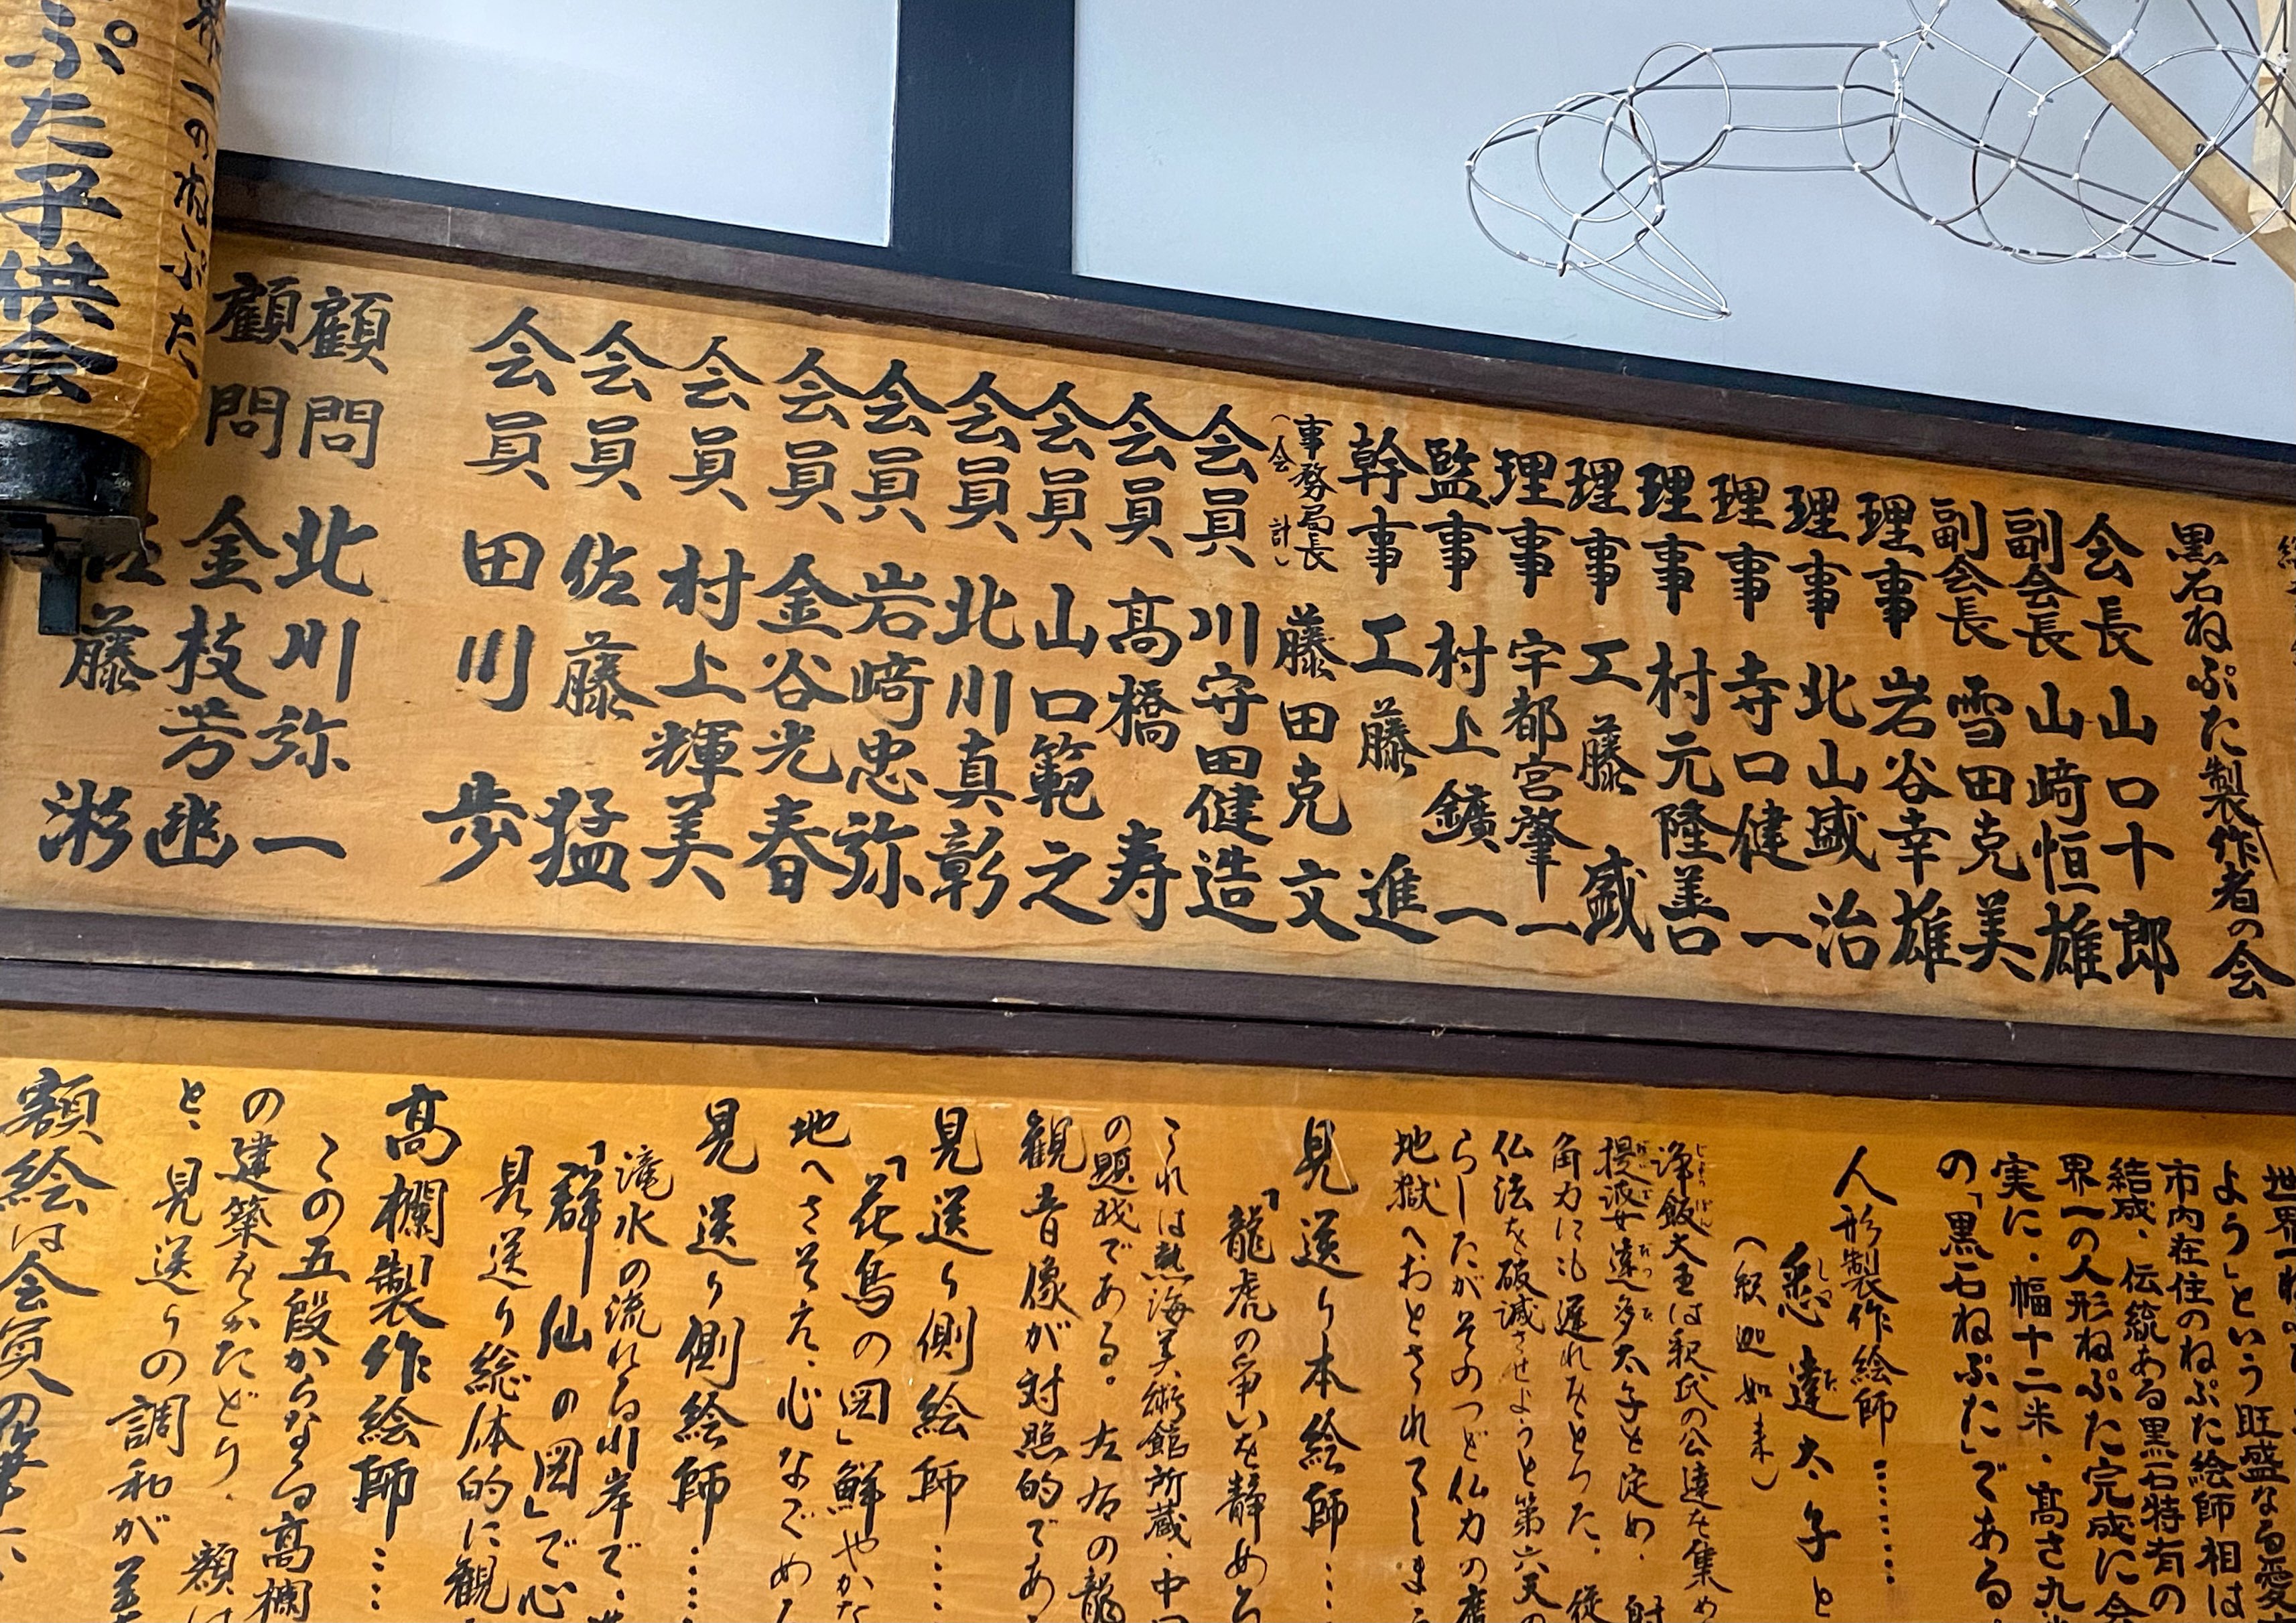 黒石ねぷた製作者の会
会長 山口十郎
副会長 山崎恒雄
副会長 雪田克美
理事 岩谷幸雄
理事 北山盛治
理事 寺口健一
理事 村元隆善
理事 工藤 盛
理事 宇都宮肇一
監事 村上鑛一
幹事 工藤 進
事務局長(会計) 藤田克文
会員 川守田健造
会員 髙橋 寿
会員 山口範之
会員 北川真彰
会員 岩﨑忠弥
会員 金谷光春
会員 村上輝美
会員 佐藤 猛
会員 田川 歩
顧問 北川弥一
顧問 金枝芳
藤
ぷた子供会
一のねぷた
よう」という旺盛なる愛
市内在住のねぷた絵師相は
結成、伝統ある黒石特有の
界一の人形ねぷた完成に会
実に、幅十二米、高さ九
の「黒石ねぷた」である
人形製作絵師……
悉達太子と
(釈迦如来)
浄飯大王は釈氏の公達を集め
提婆達多太子と定め、
角力にも遅れをとった、従
仏法を破滅させようと第六天の
らしたがそのつど仏力の
地獄へおとされてしま
見送り本絵師…
「龍虎の争いを静める
これは熱海美術館所蔵、中
の題我である。左右の龍
観音像が対照的であ
見送り側絵師……
「花鳥の図」鮮やかな
地へさそえ、心なごめ
見送り側絵師……
滝水の流れる川岸で、
「群仙の図」で心
見送り総体的に観
高欄製作絵師……
この五段からなる高欄
の建築をかたどり、額
と、見送りの調和が
額絵は会員の筆